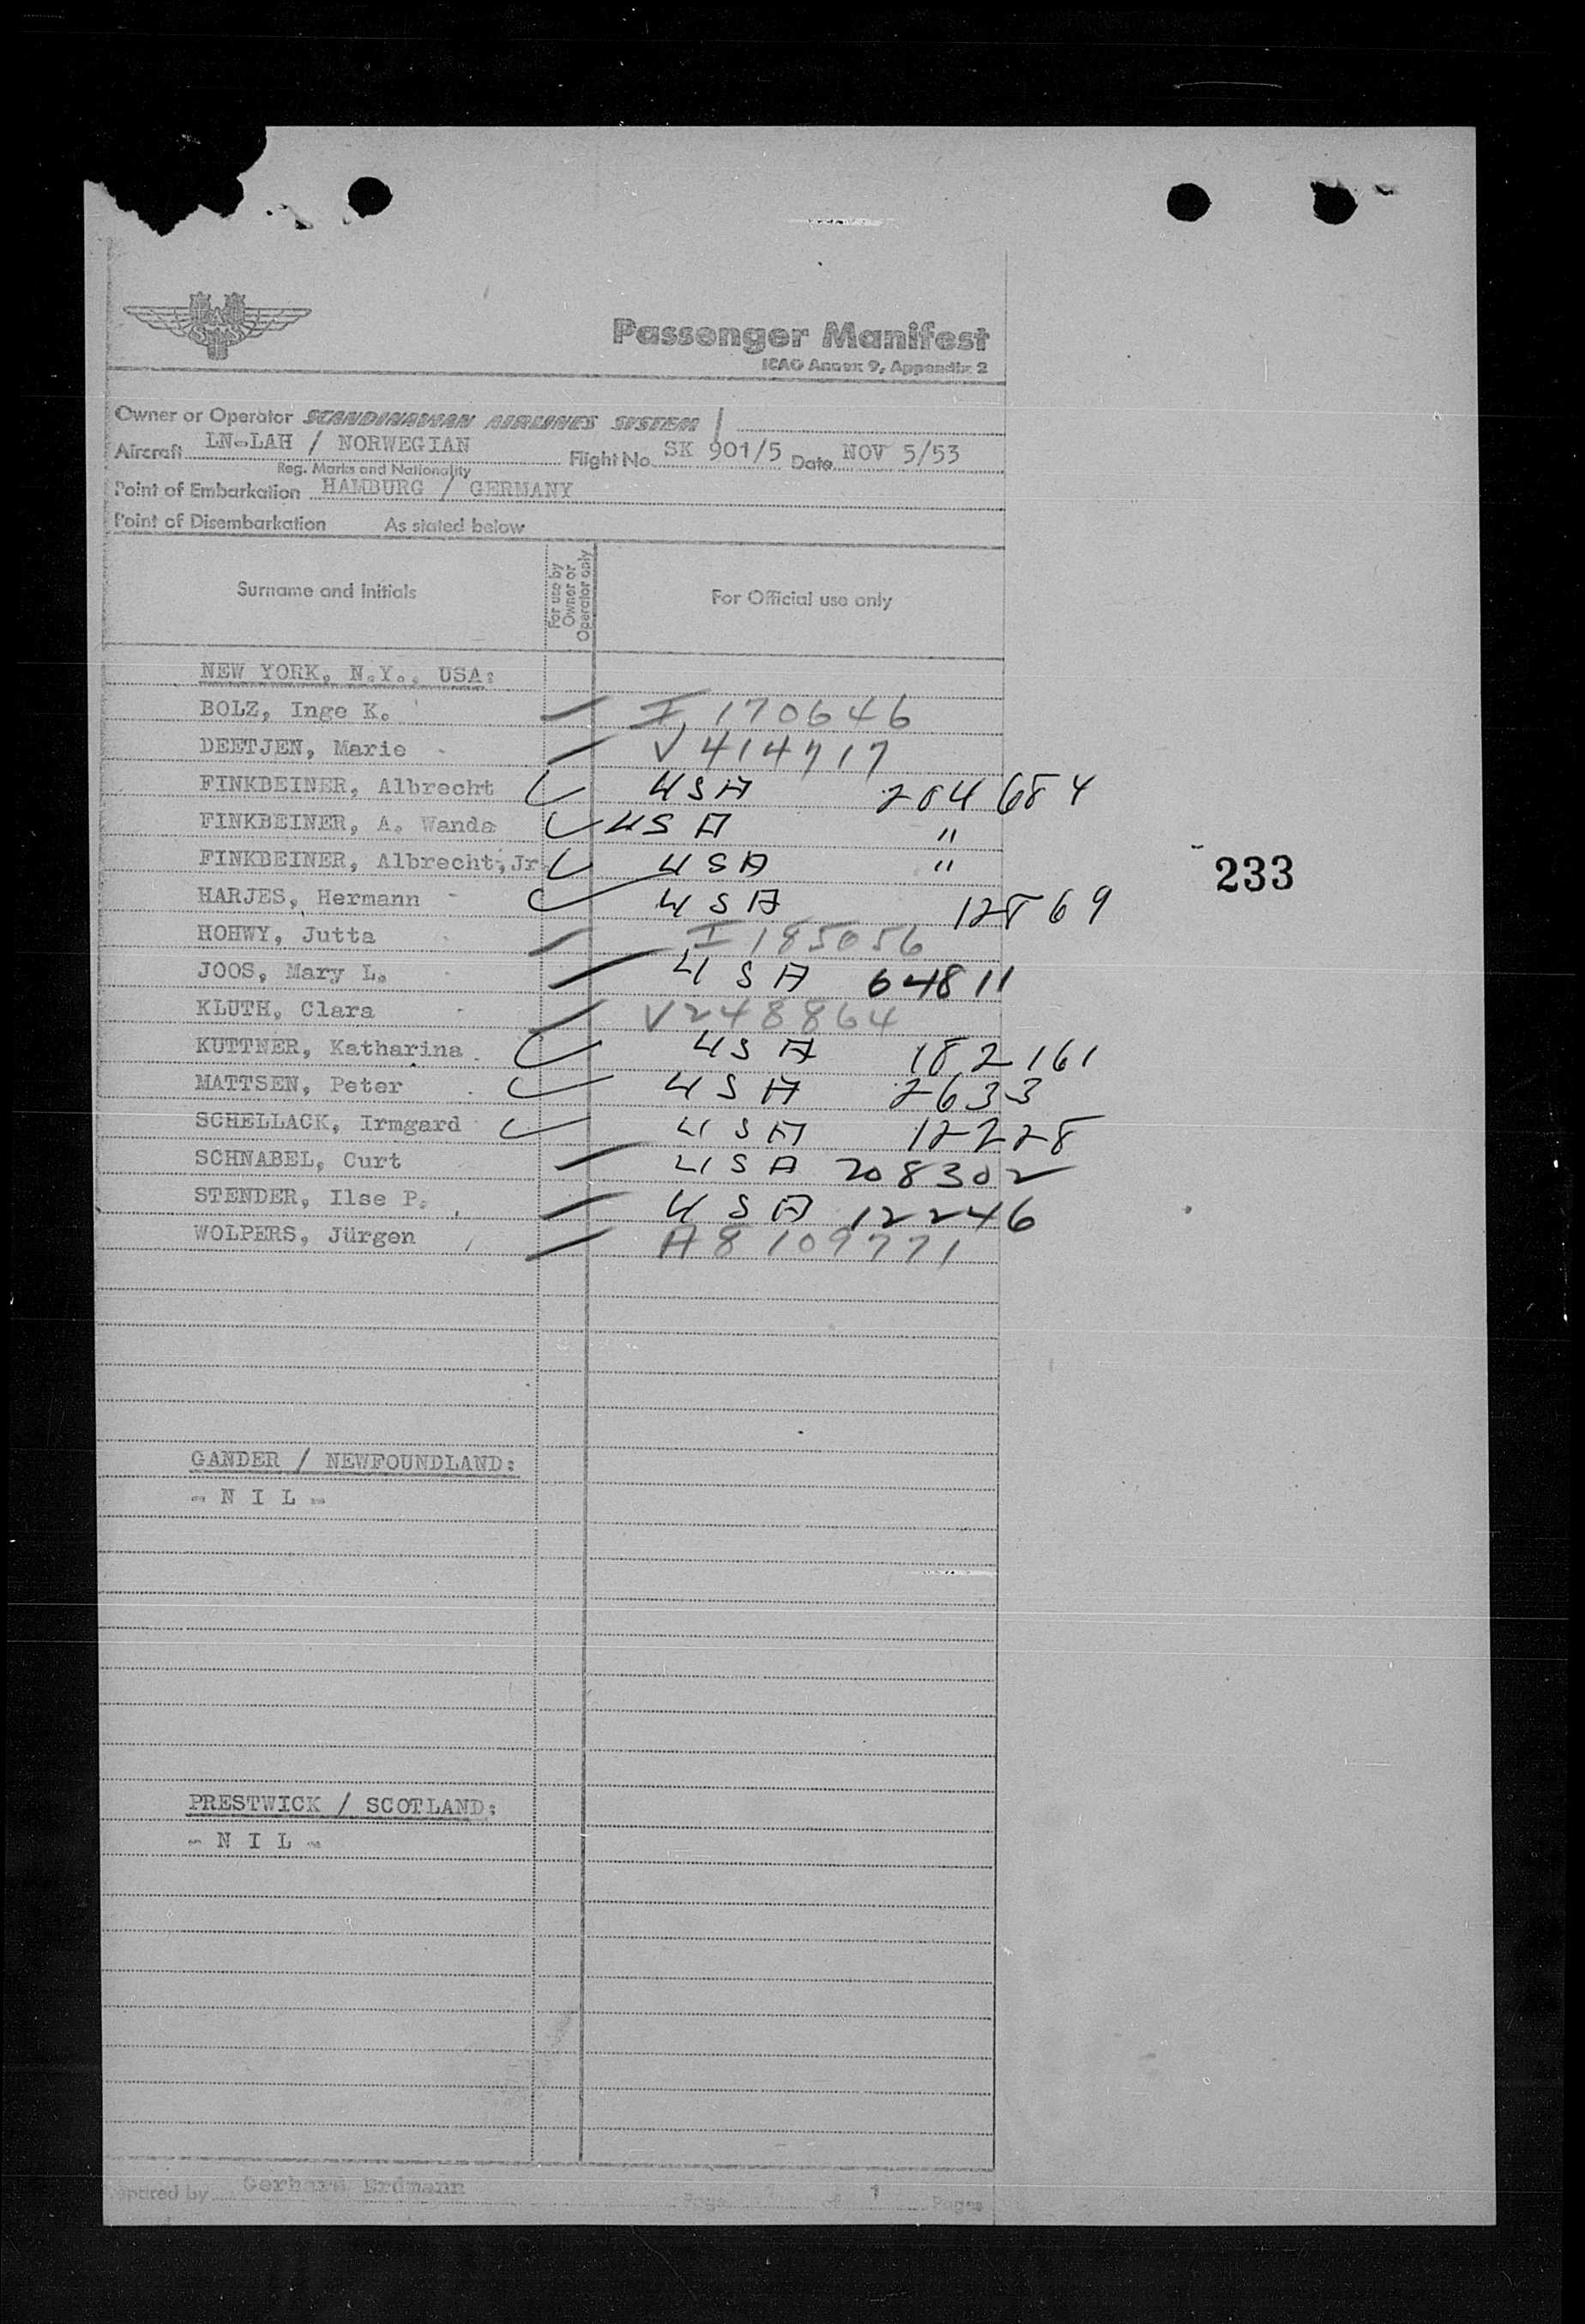 Passenger Manifest
ICAO Annex 9, Appendix 2
Owner or Operator SCANDINAVIAN AIRLINES SYSTEM
Aircraft LN-LAH / NORWEGIAN Flight No. SK 901/5 Date NOV 5/53
Reg. Marks and Nationality
Point of Embarkation HAMBURG / GERMANY
Point of Disembarkation As stated below
Surname and Initials For use by Owner or Operator only For Official use only
NEW YORK, N.Y., USA:
BOLZ, Inge K. I 170646
DEETJEN, Marie V 414717
FINKBEINER, Albrecht USA 204684
FINKBEINER, A. Wanda USA "
FINKBEINER, Albrecht, Jr. USA "
233
HARJES, Hermann USA 12869
HOHWY, Jutta I 185056
JOOS, Mary L. USA 64811
KLUTH, Clara V248864
KUTTNER, Katharina USA 182161
MATTSEN, Peter USA 2633
SCHELLACK, Irmgard USA 12228
SCHNABEL, Curt USA 208302
STENDER, Ilse P. USA 12246
WOLPERS, Jürgen A8109771
GANDER / NEWFOUNDLAND:
- N I L -
PRESTWICK / SCOTLAND:
- N I L -
Prepared by Gerhard Erdmann Page of 1 Pages